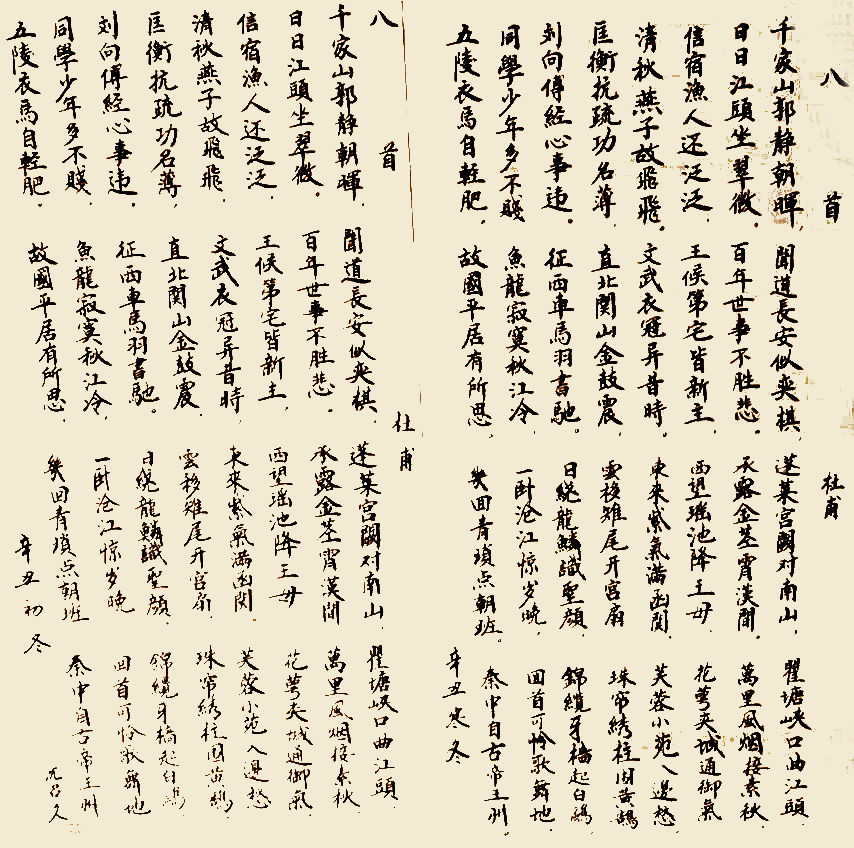 八首
杜甫
千家山郭静朝暉，
日日江頭坐翠微。
信宿漁人还泛泛，
清秋燕子故飛飛。
匡衡抗疏功名薄，
刘向傳經心事違。
同學少年多不賤
五陵衣馬自輕肥。
聞道長安似奕棋，
百年世事不胜悲。
王侯第宅皆新主，
文武衣冠异昔時。
直北関山金鼓震
征西車馬羽書馳。
魚龍寂寞秋江冷，
故國平居有所思，
蓬莱宫闕对南山，
承露金莖霄漢間。
西望瑶池降王母
東來紫氣滿函関
雲移雉尾开宫扇
日繞龍鱗識聖顔，
一卧沧江惊岁晚，
幾回青瑣点朝班。
瞿塘峡口曲江頭
萬里風烟接素秋
花萼夾城通御氣
芙蓉小苑入邊愁
珠帘綉柱囲黄鵠
錦纜牙檣起白鷗
回首可怜歌舞地
秦中自古帝王州
辛丑寒冬
八首
杜甫
千家山郭静朝暉，
日日江頭坐翠微。
信宿漁人还泛泛，
清秋燕子故飛飛，
匡衡抗疏功名薄，
刘向傳經心事違，
同學少年多不賤，
五陵衣馬自輕肥。
聞道長安似奕棋，
百年世事不胜悲。
王侯第宅皆新主，
文武衣冠异昔時，
直北関山金鼓震
征西車馬羽書馳。
魚龍寂寞秋江冷，
故國平居有所思，
蓬莱宫闕对南山，
承露金莖霄漢間
西望瑶池降王母
東來紫氣滿函関
雲移雉尾开宫扇
日繞龍鱗識聖顔
一卧沧江惊岁晚
幾回青瑣点朝班
瞿塘峡口曲江頭
萬里風烟接素秋
花萼夾城通御氣
芙蓉小苑入邊愁
珠帘綉柱囲黄鵠
錦纜牙檣起白鷗
回首可怜歌舞地
秦中自古帝王州
辛丑初冬